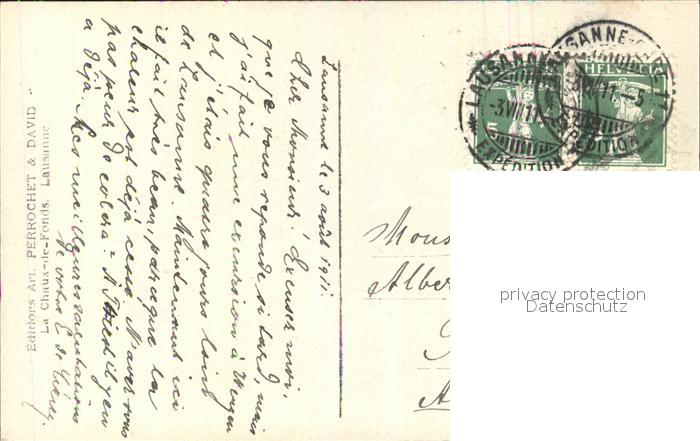 Lausanne le 3 août 1911.
Cher Monsieur! Excusez moi,
que je vous réponde si tard, mais
j'ai fait une excursion à Wengen
et j'étais quatre jours loin
de Lausanne. Maintenant ici
il fait très beau, parceque la
chaleur est déjà cessé. N'avez-vous
pas peur de colera? A
a déjà. Mes meilleures salutations
de votre E. de
Editions Art. PERROCHET & DAVID
La Chaux-de-Fonds, Lausanne
LAUSANNE
-3.VIII.11.
EXPÉDITION
LAUSANNE
VIII.11.-5
EXPÉDITION
HELVETIA
Mons
Alber
privacy protection
Datenschutz